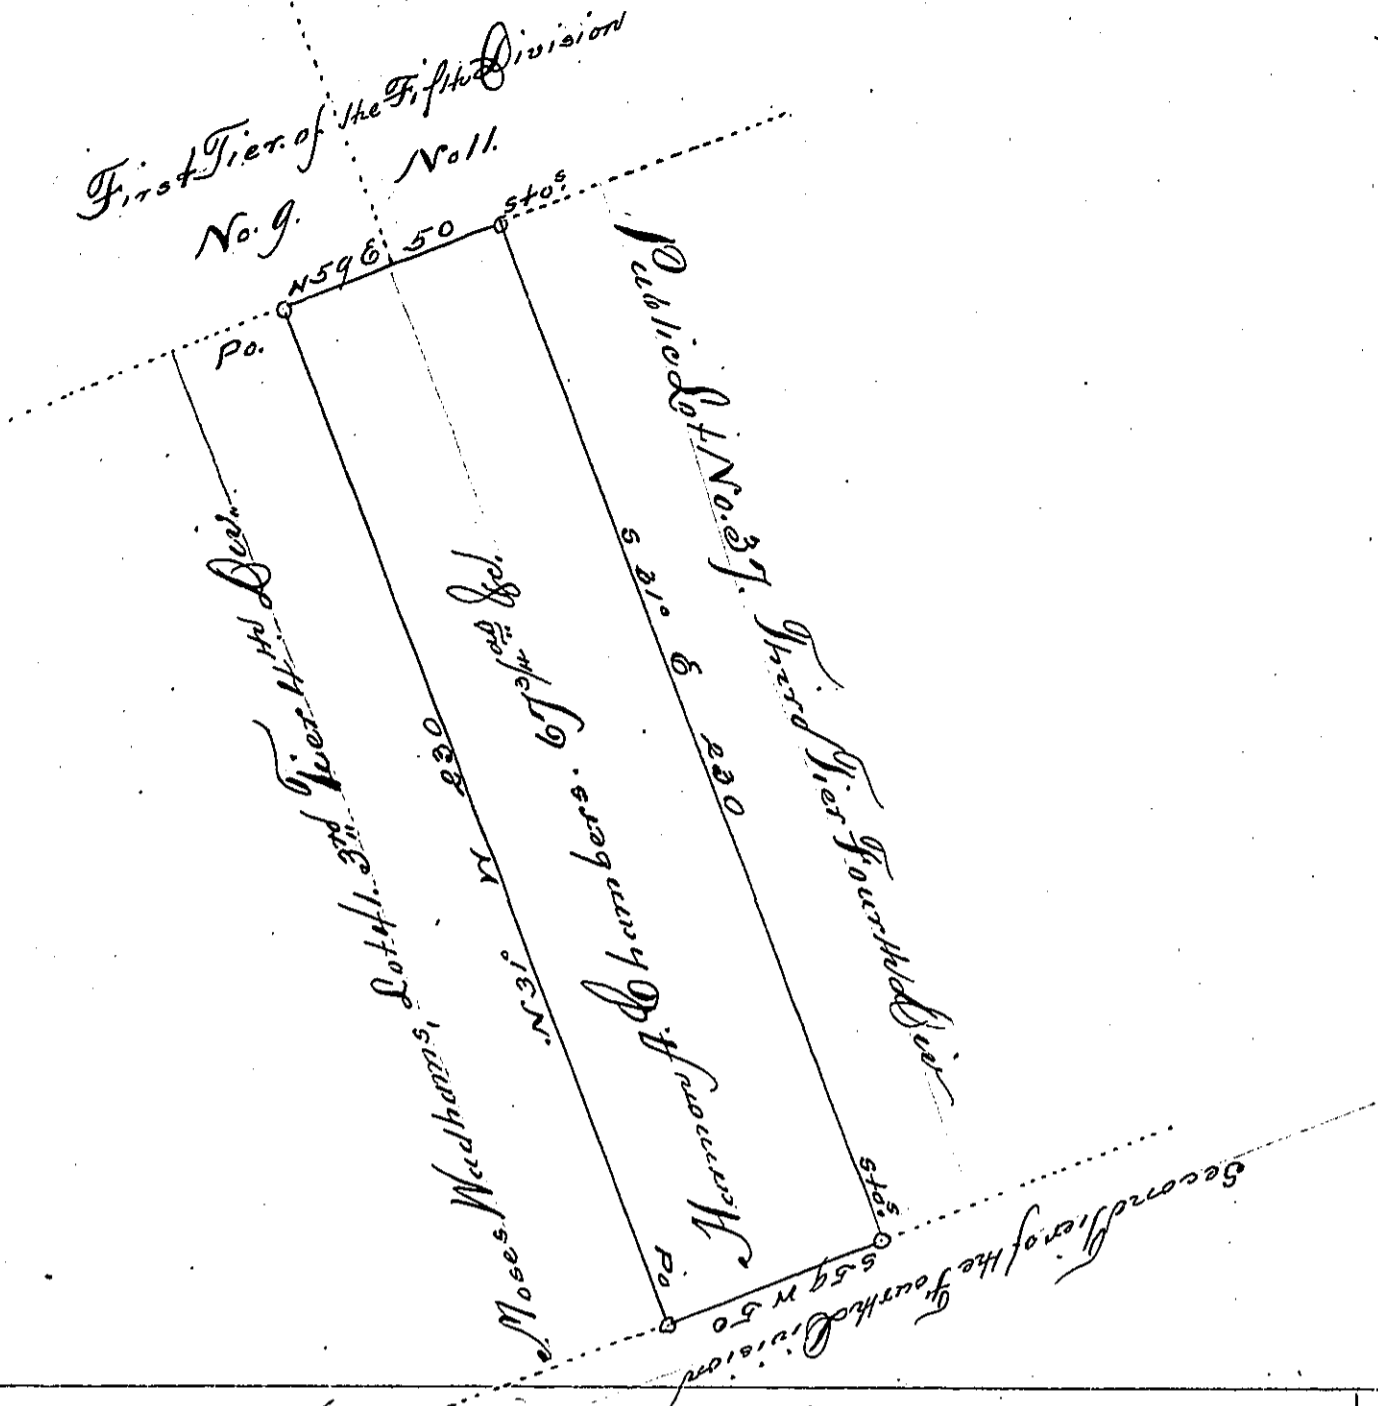 First Tier of the Fifth Division
No. 9.
No 11.
N 59 E 50
Sto.s
Po.
Public Lot No. 37. Third Tier Fourth Div
S 31° E 230
67 3/4
N 31° W 230
Moses Wadhams, Lot 41. 3rd Tier 4th Div.
Po.
Sto.s
S 59 W 50
Second Tier of the Fourth Division